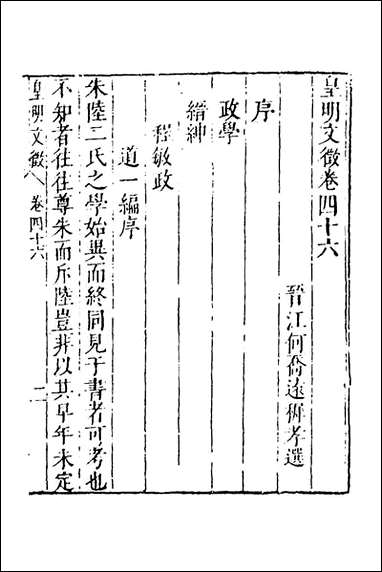 皇明文徵卷四十六
晉江何喬遠稺孝選
序
政學
縉紳
程敏政
道一編序
朱陸二氏之學始異而終同見于書者可考也
不知者往往尊朱而斥陸豈非以其早年未定
皇明文徵 卷四十六 二